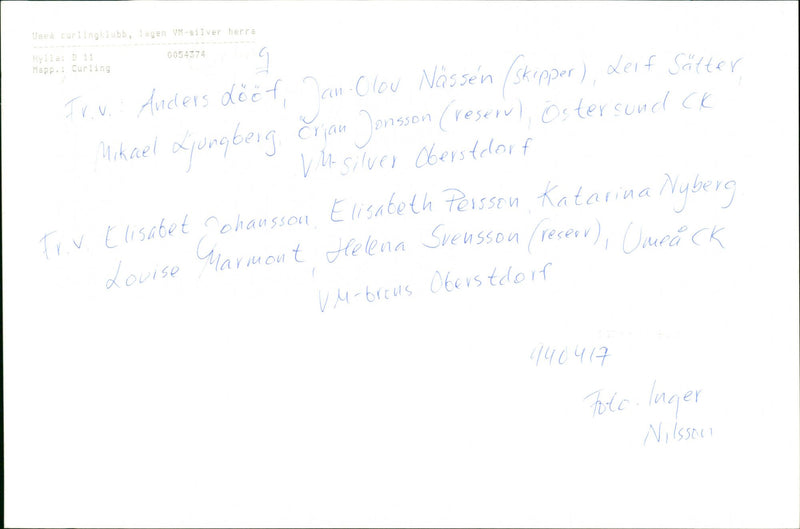 Umeå curlingklubb, lagen VM-silver herra
Hylla: D 11 0054374
Mapp.: Curling
g
Fr.v.: Anders Lööf, Jan-Olov Nässén (skipper), Leif Sätter,
Mikael Ljungberg, Örjan Jonsson (reserv), Östersund CK
VM-silver Oberstdorf
Fr.v. Elisabet Johansson, Elisabeth Persson, Katarina Nyberg
Louise Marmont, Helena Svensson (reserv), Umeå CK
VM-brons Oberstdorf
940417
Foto. Inger
Nilsson